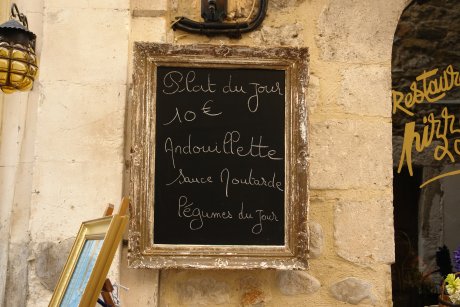 Plat du jour
10 €
Andouillette
sauce Moutarde
légumes du jour
Restau
pizz